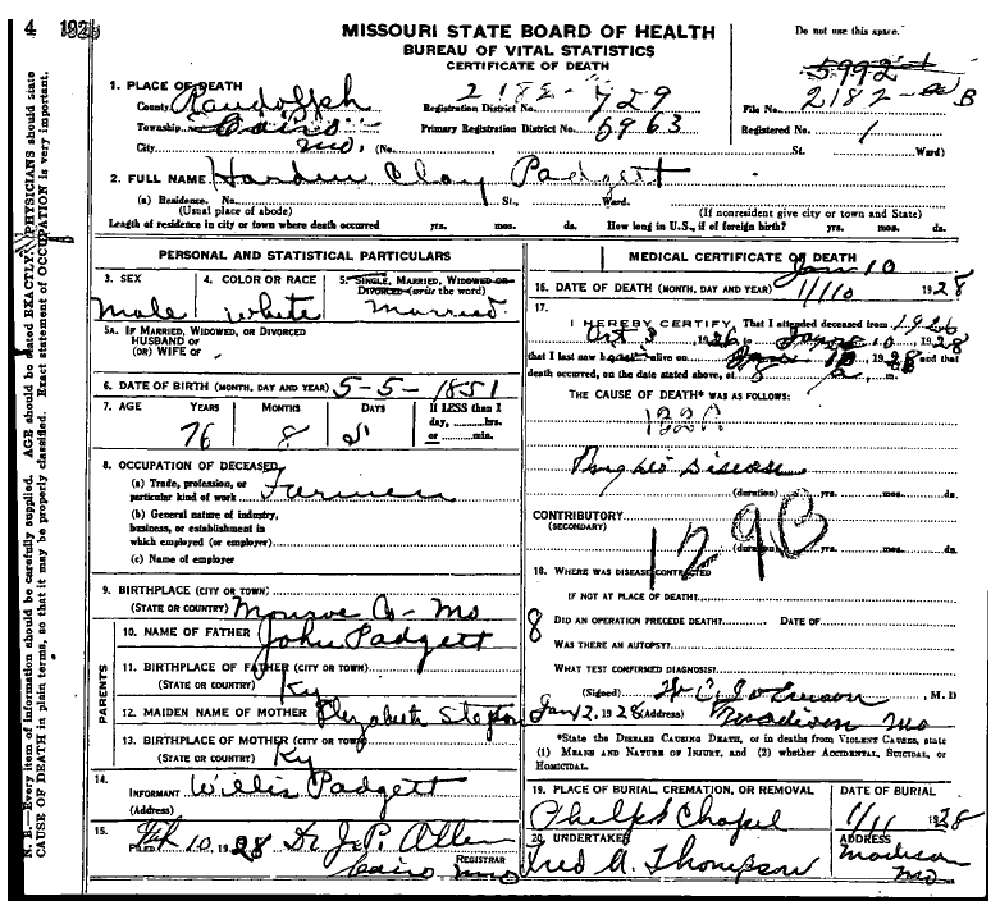 4 192
MISSOURI STATE BOARD OF HEALTH
BUREAU OF VITAL STATISTICS
CERTIFICATE OF DEATH
Do not use this space.
5992
2182-B
1. PLACE OF DEATH
County Randolph
Registration District No. 729
2182
File No.
Township Cairo
Primary Registration District No. 6963
Registered No. 1
City Mo. (No. St. Ward)
2. FULL NAME Hardin Clay Padgett
(a) Residence. No. St., Ward.
(Usual place of abode) (If nonresident give city or town and State)
Length of residence in city or town where death occurred yrs. mos. ds. How long in U.S., if of foreign birth? yrs. mos. ds.
PERSONAL AND STATISTICAL PARTICULARS
3. SEX
male
4. COLOR OR RACE
white
5. SINGLE, MARRIED, WIDOWED OR
DIVORCED (write the word)
Married
5A. IF MARRIED, WIDOWED, OR DIVORCED
HUSBAND OF
(OR) WIFE OF
6. DATE OF BIRTH (MONTH, DAY AND YEAR) 5-5-1851
7. AGE YEARS MONTHS DAYS If LESS than 1
day, hrs.
or min.
76 8 5
8. OCCUPATION OF DECEASED
(a) Trade, profession, or
particular kind of work Farmer
(b) General nature of industry,
business, or establishment in
which employed (or employer)
(c) Name of employer
9. BIRTHPLACE (CITY OR TOWN)
(STATE OR COUNTRY) Monroe Co - Mo
PARENTS
10. NAME OF FATHER John Padgett
11. BIRTHPLACE OF FATHER (CITY OR TOWN)
(STATE OR COUNTRY) Ky
12. MAIDEN NAME OF MOTHER Elizabeth
13. BIRTHPLACE OF MOTHER (CITY OR TOWN)
(STATE OR COUNTRY) Ky
14.
INFORMANT Willis Padgett
(Address)
15.
FILED Feb 10, 1928 Dr J. P. Allen
REGISTRAR
Cairo Mo
MEDICAL CERTIFICATE OF DEATH
Jan 10
16. DATE OF DEATH (MONTH, DAY AND YEAR) 1/10 1928
17.
I HEREBY CERTIFY, That I attended deceased from 1926
Oct 3, 1926 to Jan 10, 1928
that I last saw h alive on Jan 10, 1928 and that
death occurred, on the date stated above, at m.
THE CAUSE OF DEATH* WAS AS FOLLOWS:
Brights Disease
(duration) yrs. mos. ds.
CONTRIBUTORY
(SECONDARY)
129B
(duration) yrs. mos. ds.
18. WHERE WAS DISEASE CONTRACTED
IF NOT AT PLACE OF DEATH?
8
DID AN OPERATION PRECEDE DEATH? DATE OF
WAS THERE AN AUTOPSY?
WHAT TEST CONFIRMED DIAGNOSIS?
(Signed) , M. D
Jan 12, 1928 (Address) Madison Mo
*State the DISEASE CAUSING DEATH, or in deaths from VIOLENT CAUSES, state
(1) MEANS AND NATURE OF INJURY, and (2) whether ACCIDENTAL, SUICIDAL, or
HOMICIDAL.
19. PLACE OF BURIAL, CREMATION, OR REMOVAL
Phelps Chapel
DATE OF BURIAL
1/11 1928
20. UNDERTAKER
Fred A. Thompson
ADDRESS
Madison
Mo
N. B.—Every item of information should be carefully supplied. AGE should be stated EXACTLY. PHYSICIANS should state
CAUSE OF DEATH in plain terms, so that it may be properly classified. Exact statement of OCCUPATION is very important.